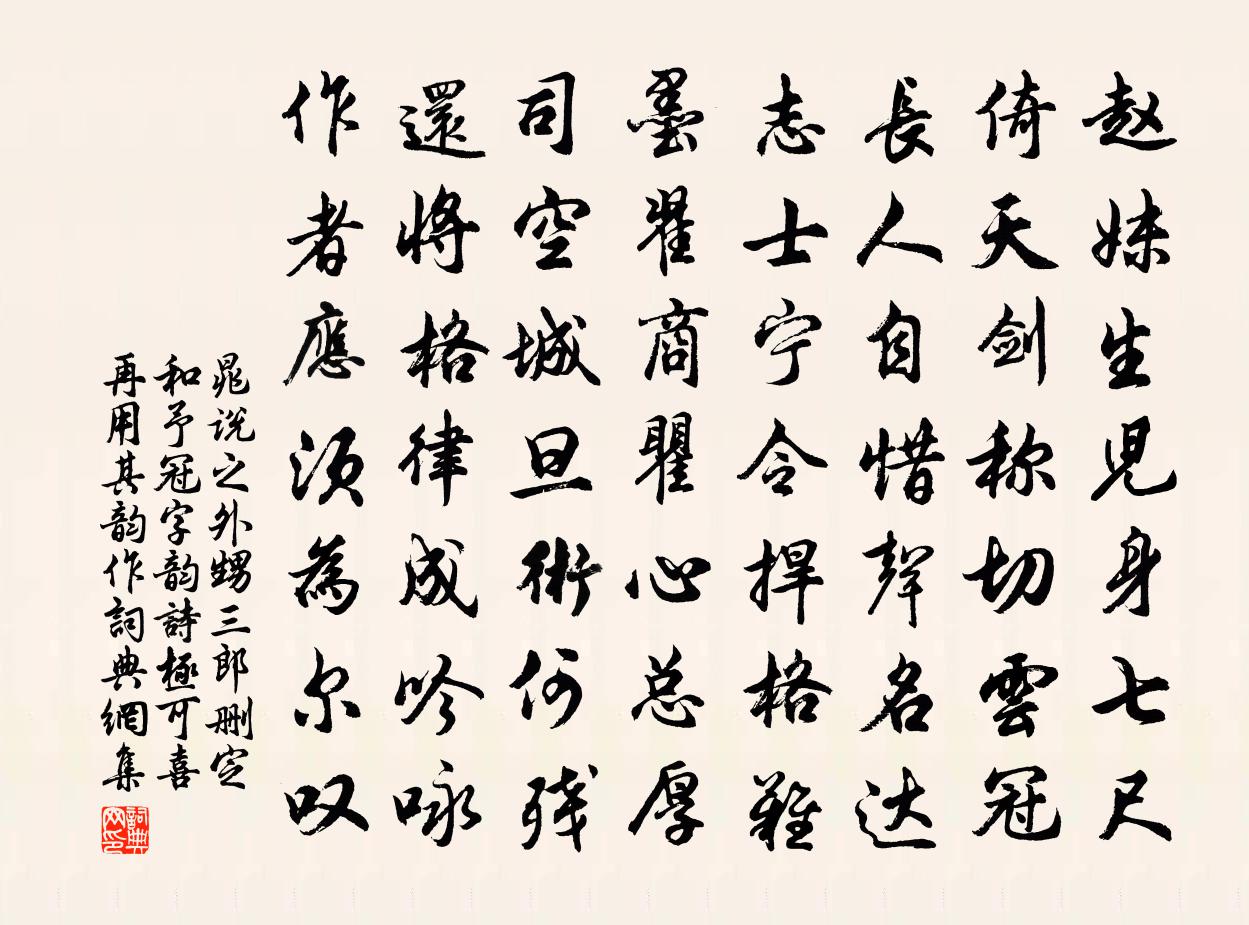 赵妹生児身七尺
倚天剑称切雲冠
長人自惜聲名达
志士宁令捍格難
墨翟商瞿心总厚
司空城旦術何残
還将格律成吟咏
作者應须為尔叹
晁说之外甥三郎删定
和予冠字韵詩極可喜
再用其韵作詞典網集
詞典网印